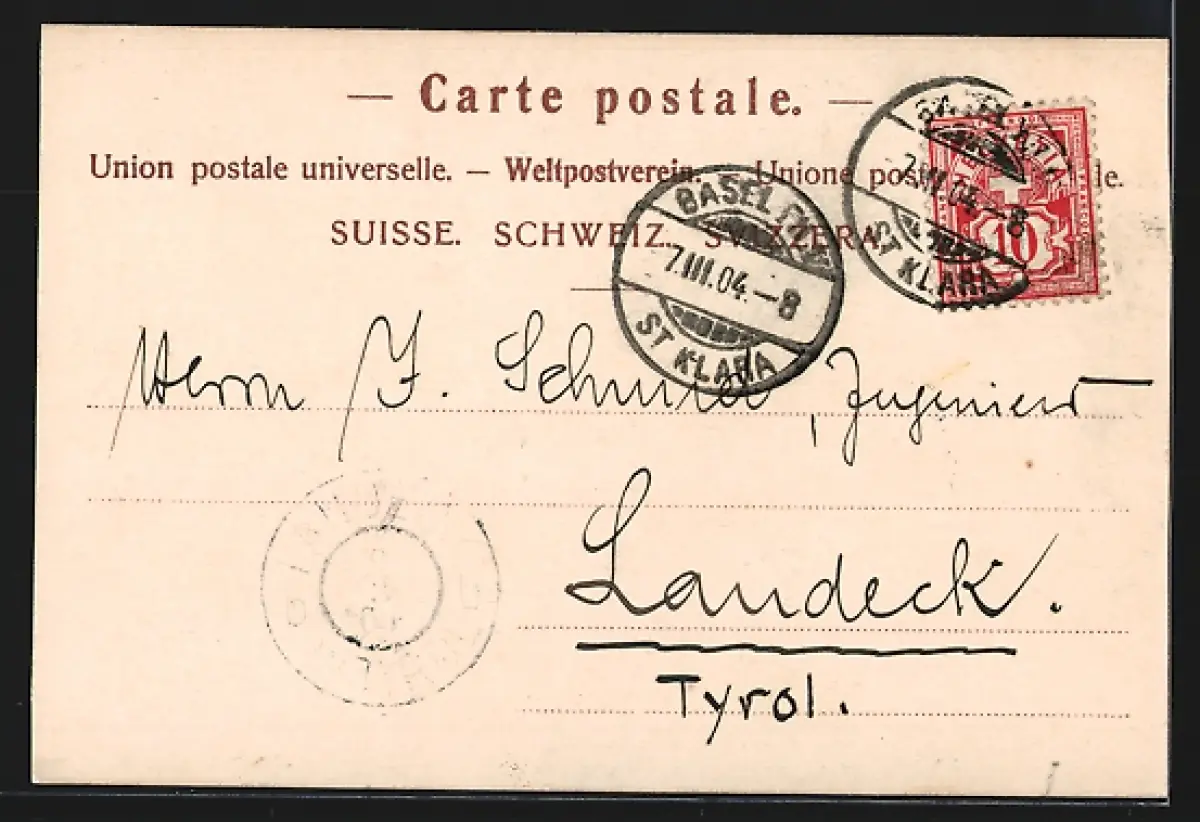 — Carte postale. —
Union postale universelle. — Weltpostverein. — Unione postale
le.
SUISSE. SCHWEIZ. SVIZZERA.
BASEL
7.III.04.—8
ST KLARA
BASEL
7.III.04.—8
ST KLARA
10
Herrn J. Ingenieur
Landeck.
Tyrol.